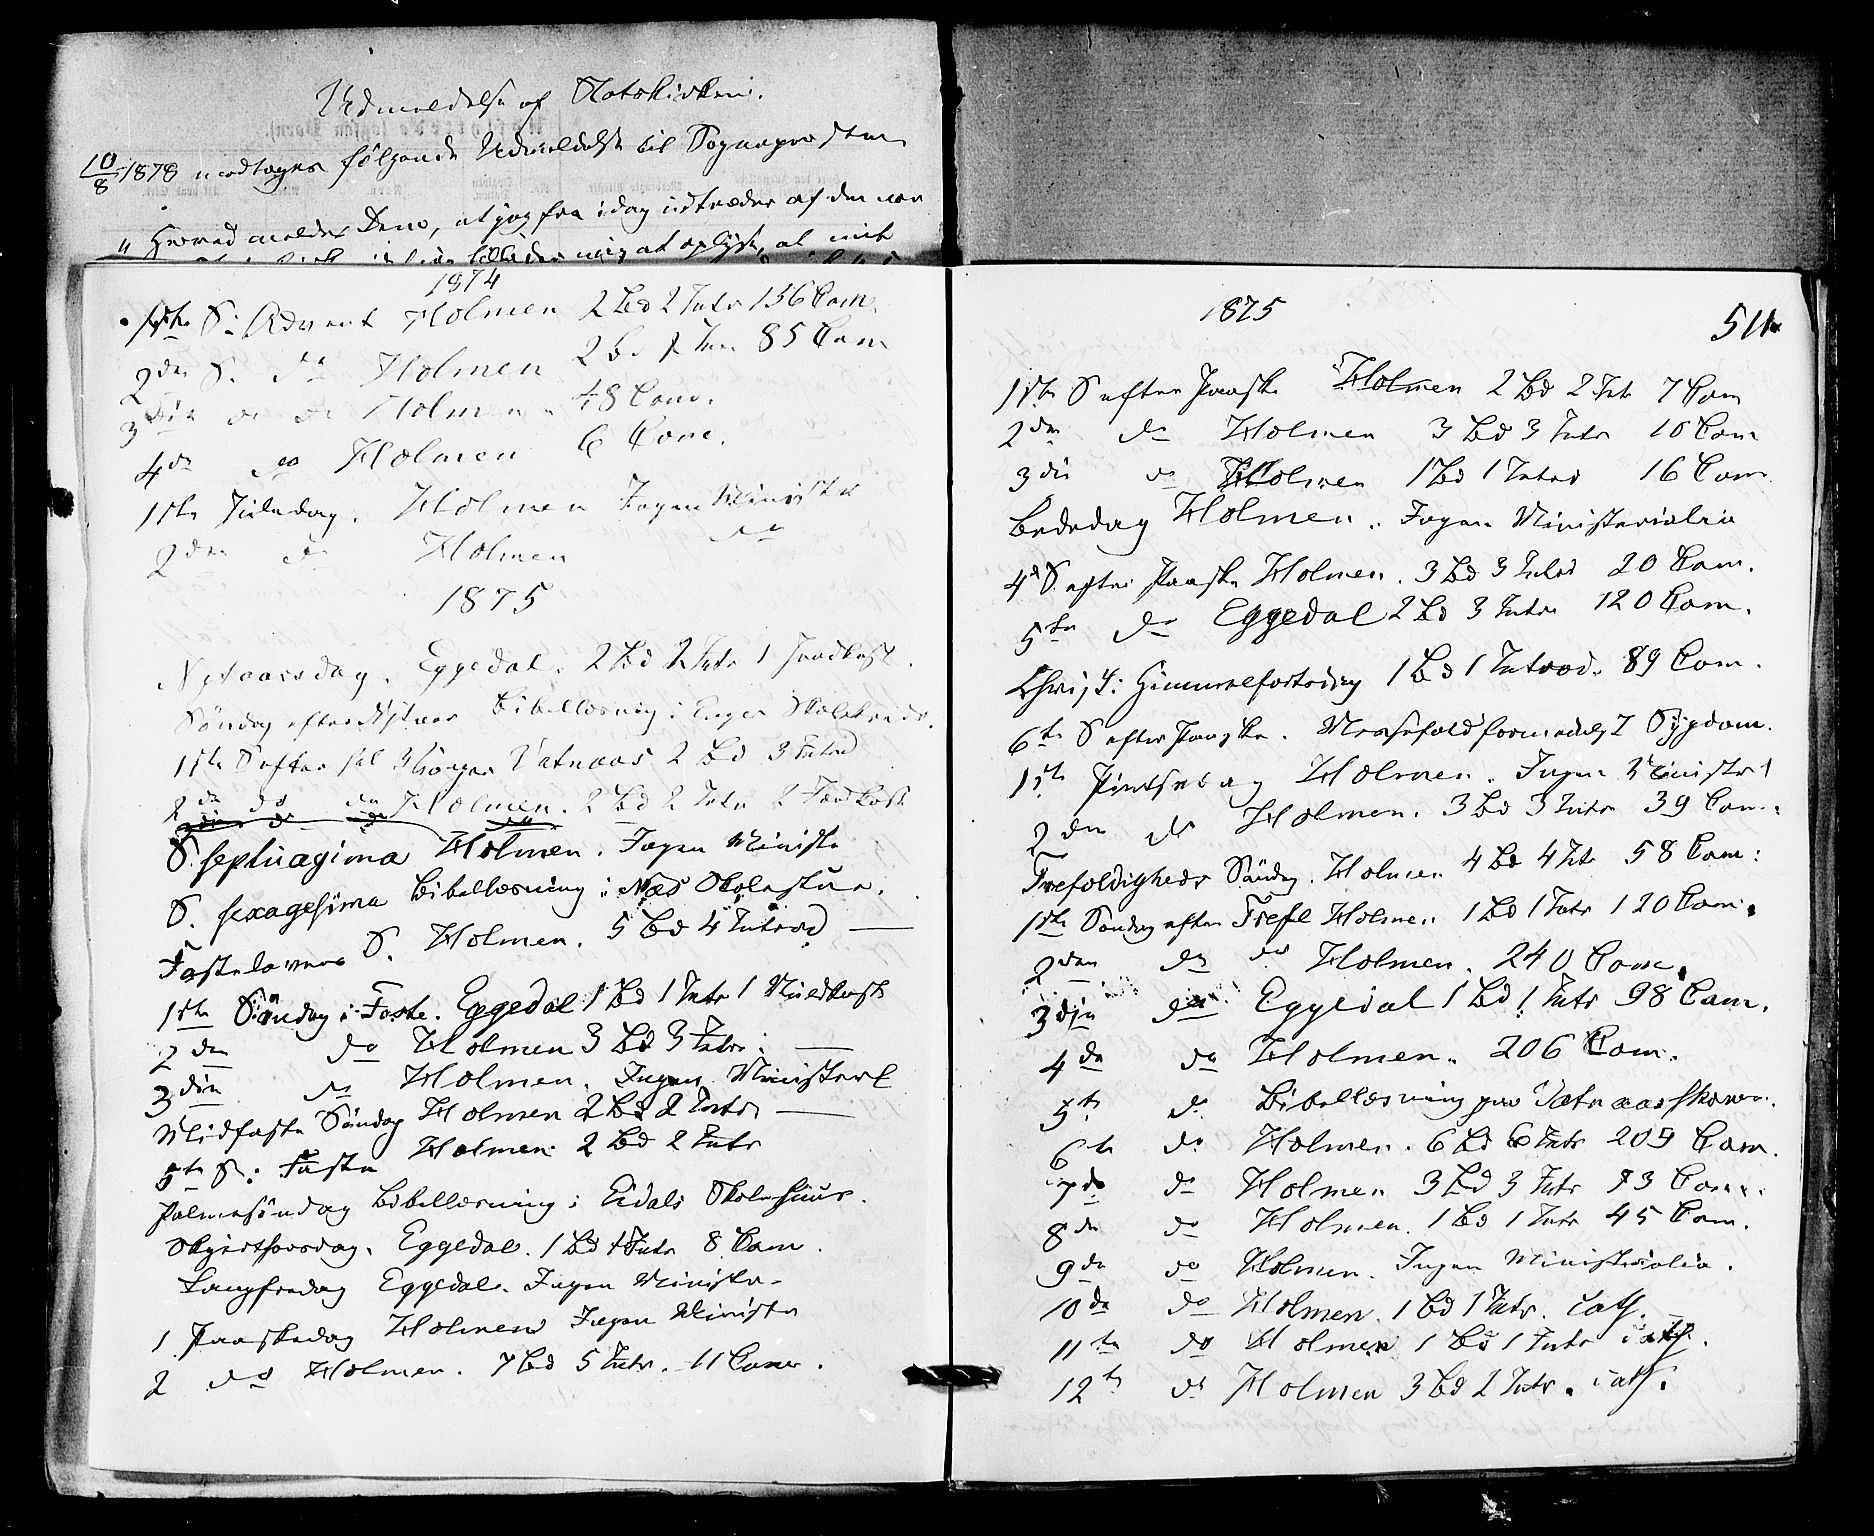 Udmeldelse af Statskirken.
10/8 1878 modtoges følgende Udmeldelse til Sognepresten
"Herved meldes Dem, at jeg fra idag udtræder af den nor
mig at oplyse, at mit
1874
1ste S. i Advent Holmen 2 Bd 2 Intr 136 Com.
2den S. do Holmen 2 Bd 1 Intr 85 Com
3die S. do Holmen 48 Com.
4de do Holmen 6 Com.
1ste Juledag. Holmen Ingen Ministr
2den do Holmen do
1875
Nytaarsdag. Eggedal. 2 Bd 2 Intr 1 Jordkast.
Søndag efter Nytaar Bibellæsning i Enger Skolekreds.
1ste S efter hel 3 Konger Vatnaas 2 Bd 3 Introd
2den do do Holmen. 2 Bd 2 Intr 2 Jordkast
3die do do do
S. septuagima Holmen. Ingen Ministr
S. sexagesima Bibellæsning i Næs Skolestue.
Fastelavns S. Holmen. 5 Bd 4 Introd —
1ste Søndag i Faste. Eggedal 1 Bd 1 Intr 1 Muldkast
2den do Holmen 3 Bd 3 Intr. —
3die do Holmen. Ingen Ministerl
Midfaste Søndag Holmen 2 Bd 2 Intr —
5te S. i Faste Holmen 2 Bd 2 Intr
Palmesøndag Bibellæsning i Eidals Skolehuus.
Skjærthorsdag. Eggedal. 1 Bd 1 Intr 8 Com.
Langfredag Eggedal. Ingen Ministr.
1 Paaskedag Holmen Ingen Ministr
2 do Holmen. 7 Bd 5 Intr. 11 Com.
1875
511
1ste S efter Paaske Holmen 2 Bd 2 Intr 7 Com
2den do Holmen 3 Bd 3 Intr 10 Com
3die do Holmen 1 Bd 1 Introd 16 Com
Bededag Holmen. Ingen Ministerialia
4de S. efter Paaske Holmen. 3 Bd 3 Introd 20 Com.
5te do Eggedal 2 Bd 3 Intr 120 Com.
Christi Himmelfartsdag 1 Bd 1 Introd. 89 Com.
6te S efter Paaske. Messefald formedelst Sygdom.
1ste Pintsedag Holmen. Ingen Ministrl
2den do Holmen. 3 Bd 3 Intr 39 Com.
Trefoldigheds Søndag. Holmen 4 Bd 4 Intr 58 Com:
1ste Søndag efter Trefl Holmen 1 Bd 1 Intr 120 Com.
2den do do Holmen. 240 Com.
3dje do Eggedal 1 Bd 1 Intr 98 Com.
4de do Holmen. 206 Com.
5te do Bibellæsning paa Vatnaasskoven.
6te do Holmen. 6 Bd 6 Intr 209 Com.
7de do Holmen 3 Bd 3 Intr 73 Com.
8de do Holmen. 1 Bd 1 Intr 45 Com.
9de do Holmen. Ingen Ministerialia.
10de do Holmen. 1 Bd 1 Intr. Cath.
11te do Holmen 1 Bd 1 Intr Cath.
12te do Holmen 3 Bd 2 Intr. Cath.